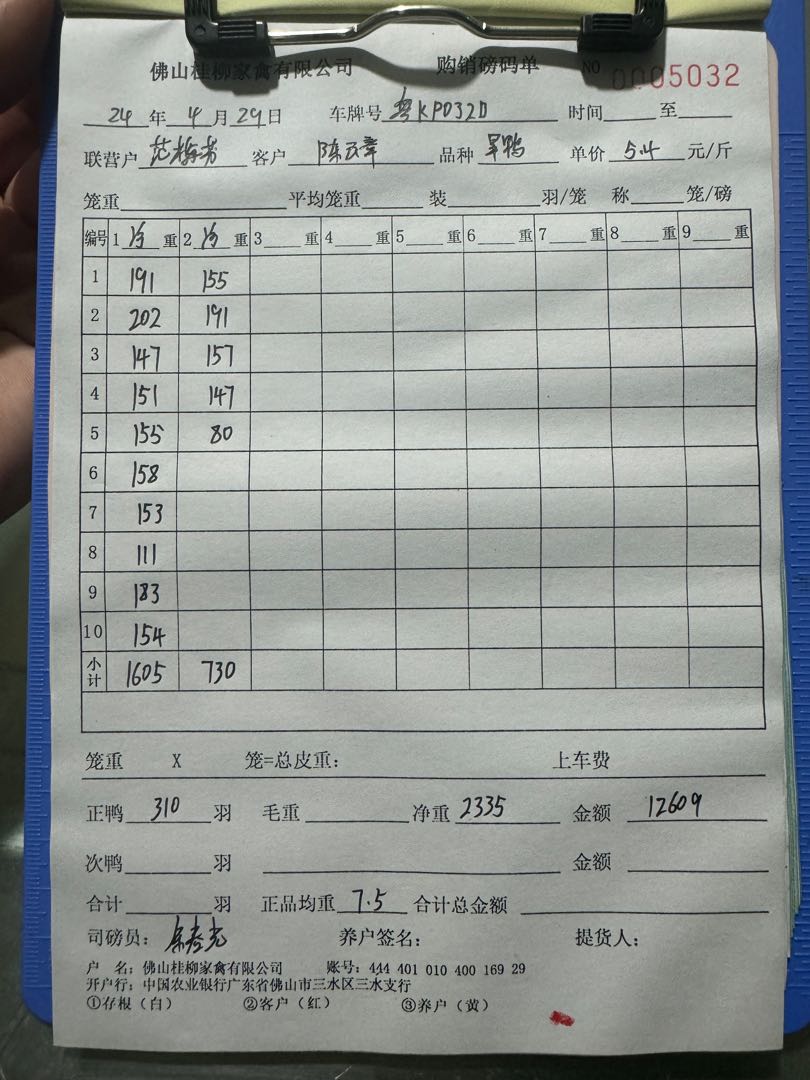 佛山桂柳家禽有限公司 购销磅码单 NO 0005032
24 年 4 月 29 日 车牌号 粤KP032D 时间 至
联营户 范梅书 客户 陈云章 品种 旱鸭 单价 5.4 元/斤
笼重 平均笼重 装 羽/笼 称 笼/磅
编号 1 净 重 2 净 重 3 重 4 重 5 重 6 重 7 重 8 重 9 重
1 191 155
2 202 191
3 147 157
4 151 147
5 155 80
6 158
7 153
8 111
9 183
10 154
小计 1605 730
笼重 X 笼=总皮重: 上车费
正鸭 310 羽 毛重 净重 2335 金额 12609
次鸭 羽 金额
合计 羽 正品均重 7.5 合计总金额
司磅员: 养户签名: 提货人:
户 名: 佛山桂柳家禽有限公司 账号: 444 401 010 400 169 29
开户行: 中国农业银行广东省佛山市三水区三水支行
①存根(白) ②客户(红) ③养户(黄)